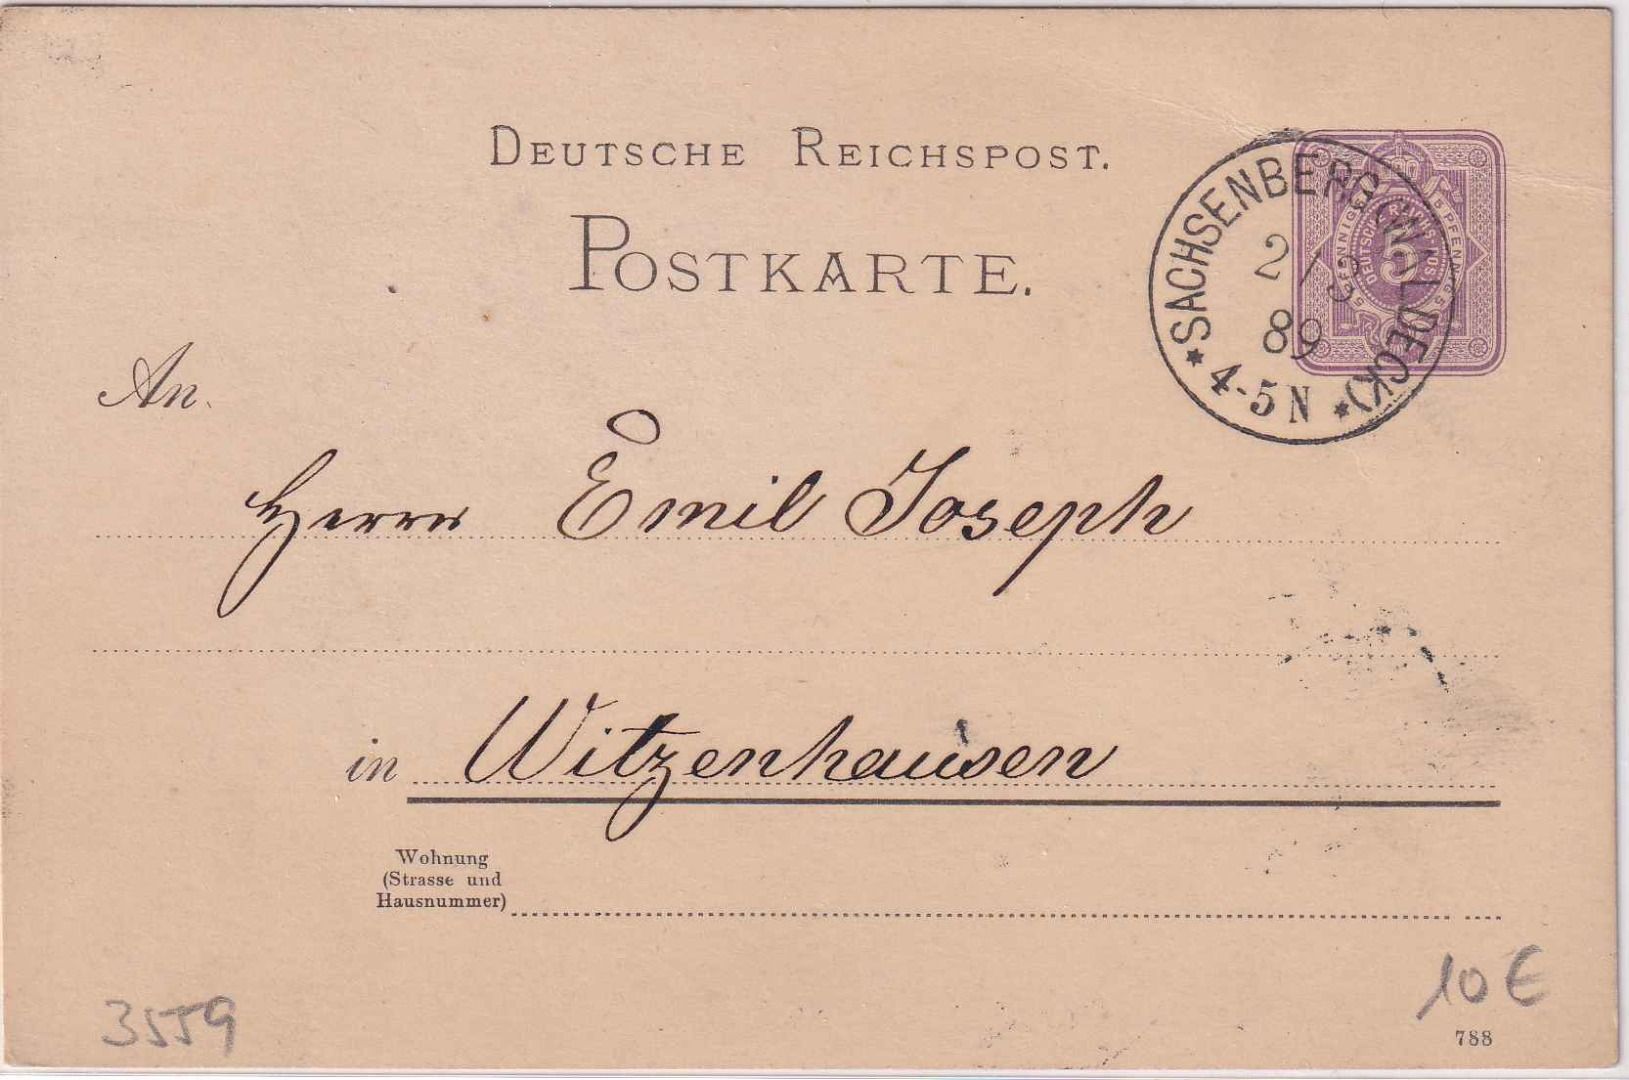 DEUTSCHE REICHSPOST.
POSTKARTE.
* SACHSENBERG (WALDECK) *
2/3
89
4-5 N
5
An
Herrn Emil Joseph
in Witzenhausen
Wohnung
(Strasse und
Hausnummer)
3559
10 €
788